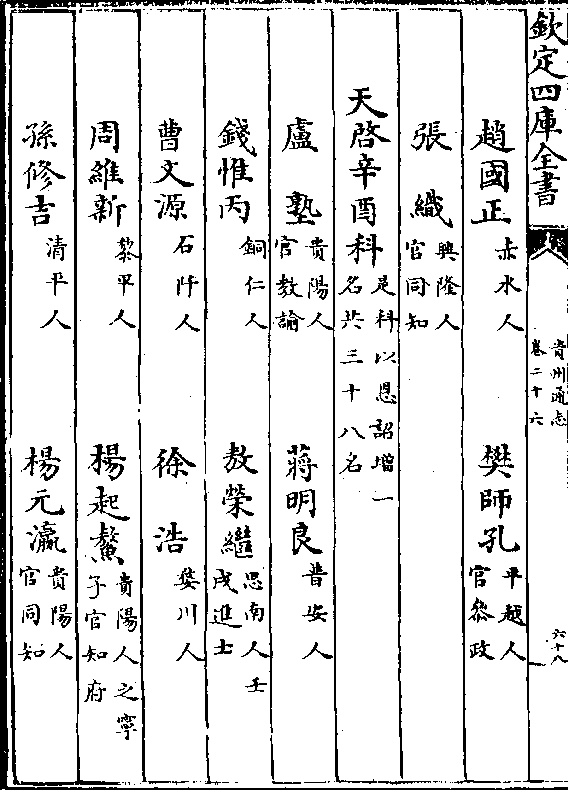 欽定四庫全書
貴州通志
卷二十六
六十八
趙國正 赤水人 樊師孔 平越人官參政
張織 興隆人官同知
天啓辛酉科 是科以恩詔增一名共三十八名
盧塾 貴陽人官教諭 蔣明良 普安人
錢惟丙 銅仁人 敖榮繼 思南人壬戌進士
曹文源 石阡人 徐浩 婺川人
周維新 黎平人 楊起鰲 貴陽人之寧子官知府
孫修吉 清平人 楊元瀛 貴陽人官同知